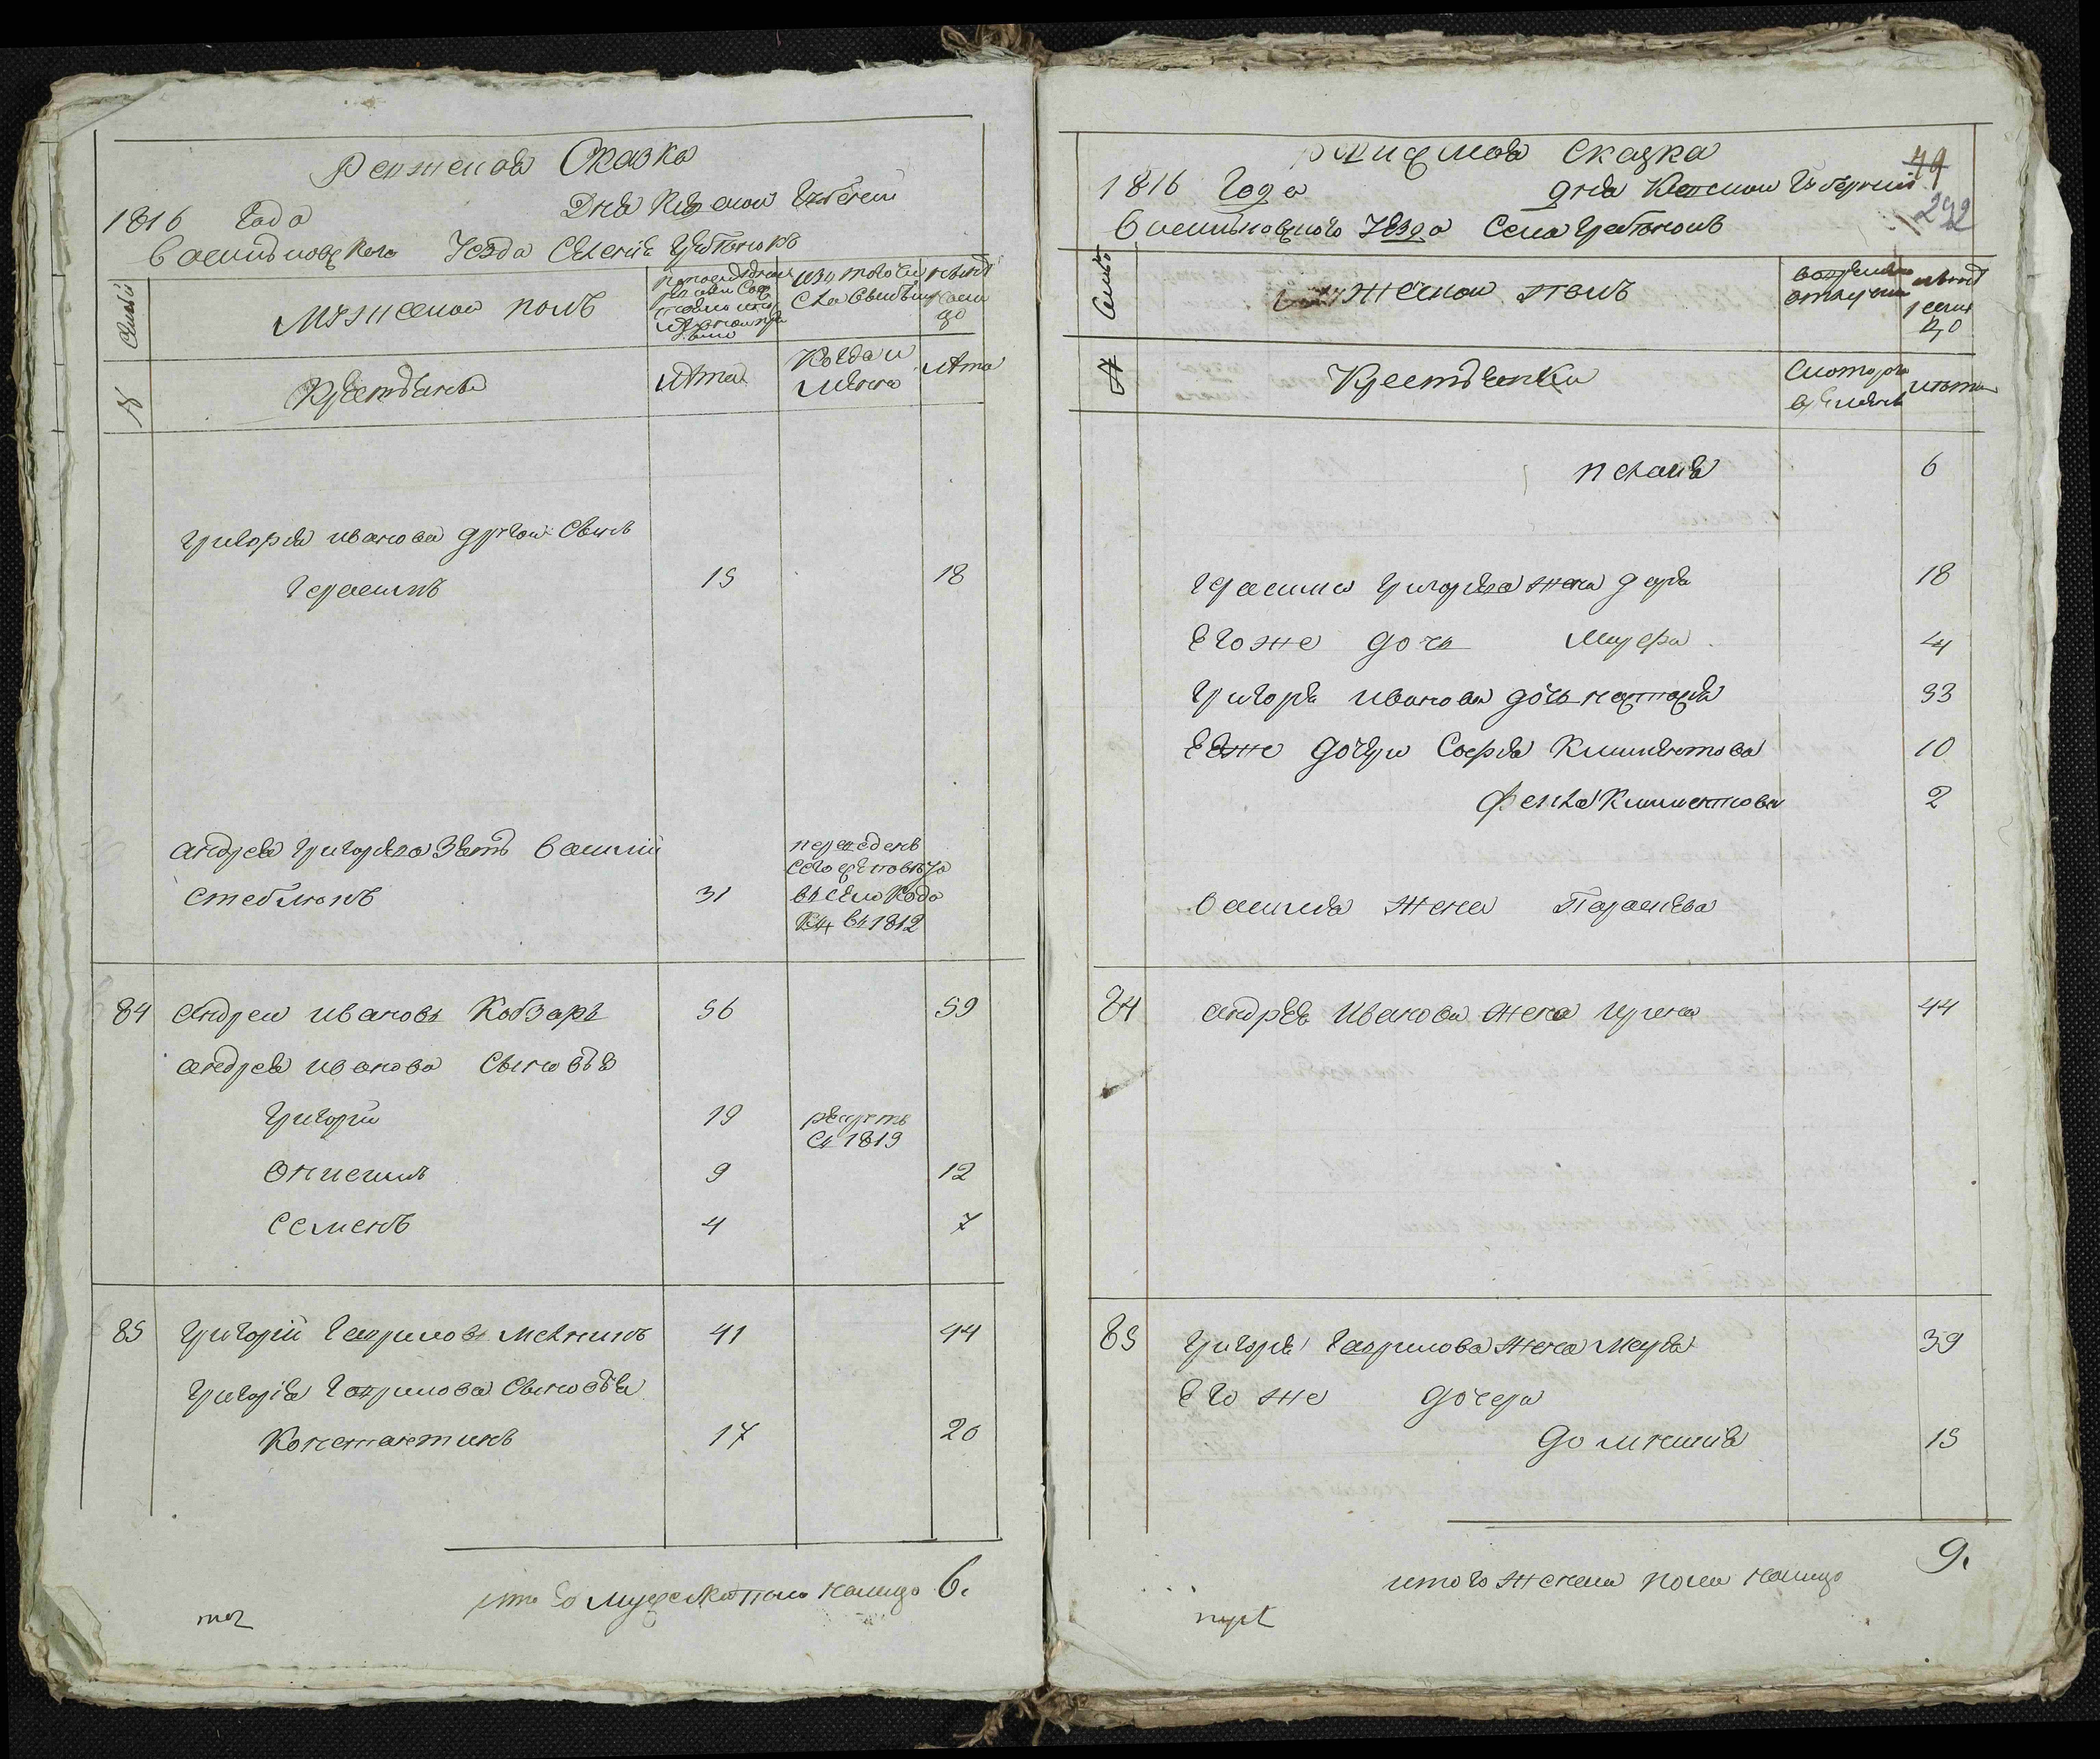 Ревижская Сказка
1816 Года Дня Киевской Губернии
Василковского Уезда Селения Гребенокъ
Семьи
Мужеской полъ
изъ того числа выбыло
ныне на лицо
№
Крестьяне
Лета
Когда и именно
Лета
Григория Иванова другой Сынъ
Герасимъ 15 18
Андрея Григорьева Зять Василий
Стеблюкъ 31
переведенъ сего уезда
въ село
въ 1812
84 Андрей Ивановъ Кобзаръ 56 59
Андрея Иванова Сыновья
Григорий 19 рекрутъ
съ 1813
Онисимъ 9 12
Семенъ 4 7
85 Григорий Гавриловъ Мелникъ 41 44
Григорія Гаврилова Сыновья
Константинъ 17 20
итого мужеска пола налицо 6.
Ревижская Сказка
49
1816 Года дня Киевской Губернии
292
Василковского Уезда Села Гребенокъ
Семьи
Женской полъ
во временной отлучке
ныне налицо
№
Крестьянки
С которого времени
лета
Пелагия 6
Герасима Григорьева жена Дарья 18
Его же дочь Марфа 4
Григорья Иванова дочь Настасья 33
Ее же дочери Софья Климентова 10
Фекла Климентова 2
Василия жена Параскева
84 Андрея Иванова жена Ирина 44
85 Григорья Гаврилова жена Марья 39
Его же дочера
Домникия 15
итого женска пола налицо 9.